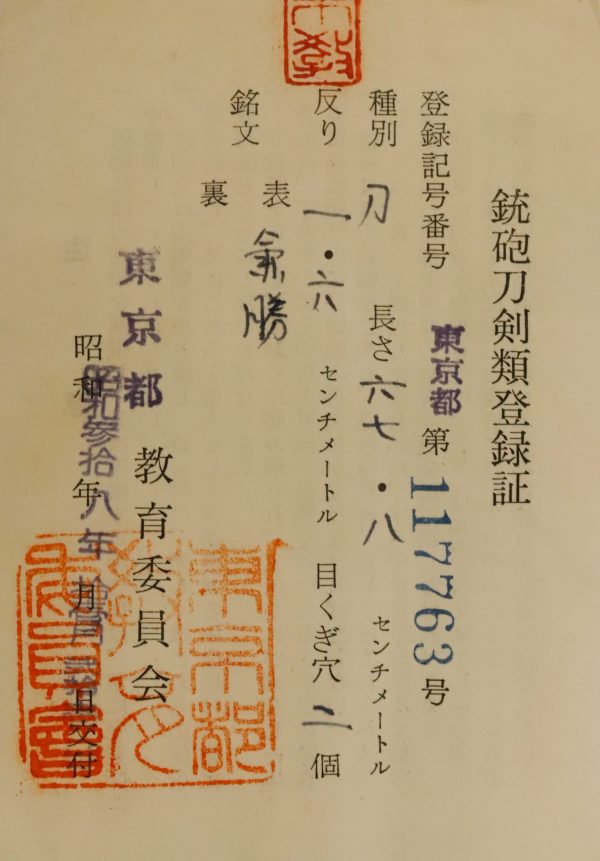 銃砲刀剣類登録証
登録記号番号 東京都 第 117763 号
種別 刀 長さ 六七・八 センチメートル
反り 一・六 センチメートル 目くぎ穴 二 個
銘文 表 兼勝
裏
東京都 教育委員会
昭和 年 月 日交付
昭和参拾八年
東京都
教育
委員會
教